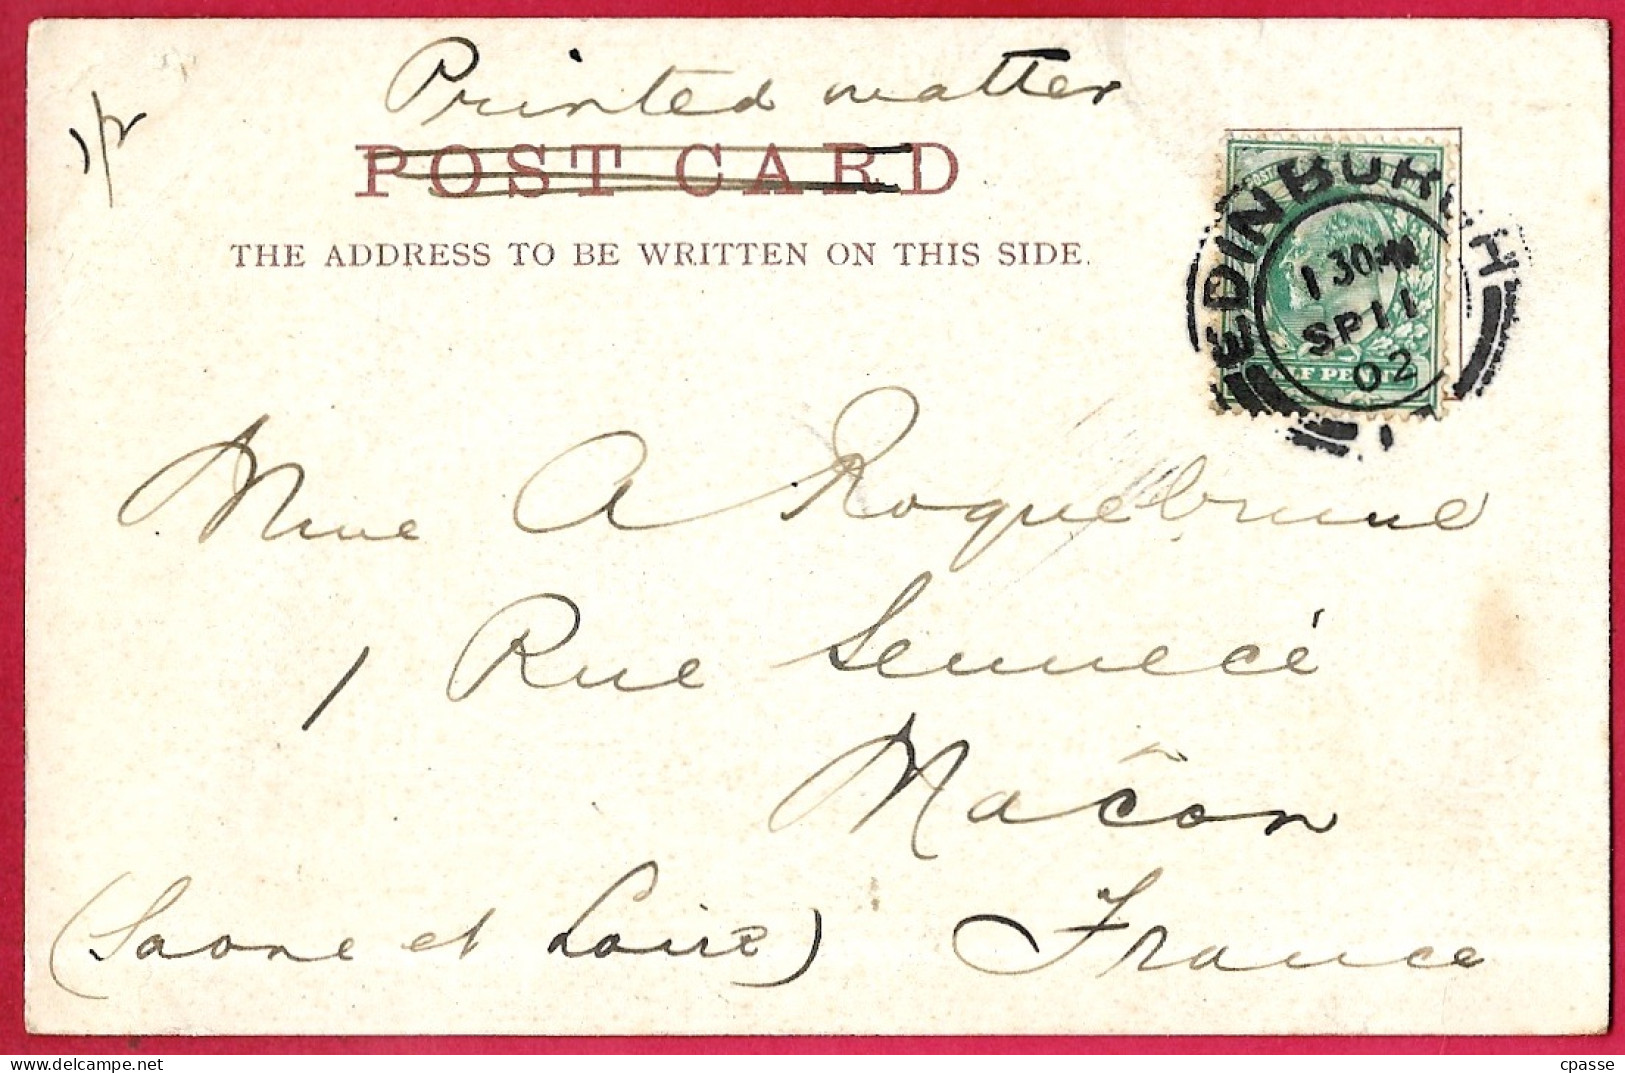 Printed matter
1/2
POST CARD
THE ADDRESS TO BE WRITTEN ON THIS SIDE.
EDINBURGH
1 30 PM
SP 11
02
HALF PENNY
Mme A Roquebrune
1 Rue Sennecé
Mâcon
(Saone et Loire) France
cpasse